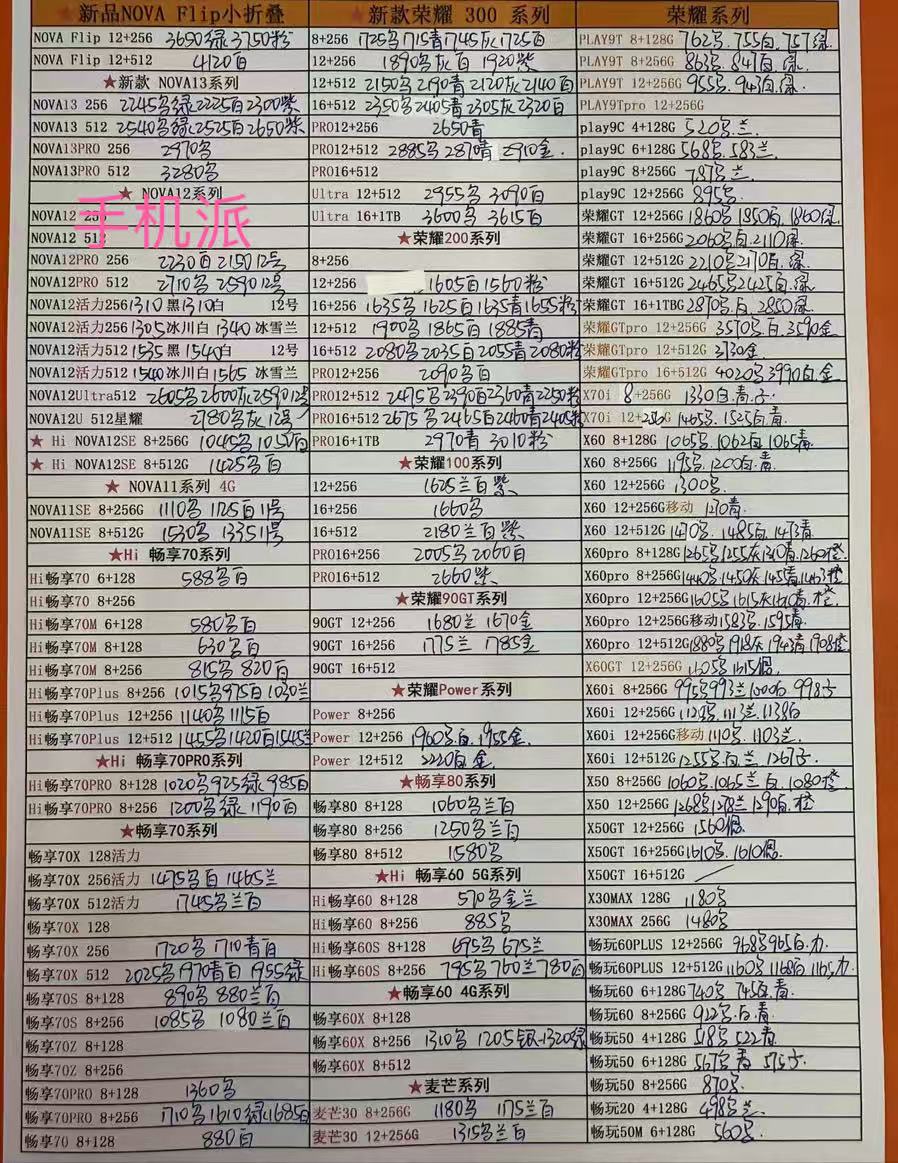 ★新品NOVA Flip小折叠
NOVA Flip 12+256 3650绿 3750粉
NOVA Flip 12+512 4120白
★新款 NOVA13系列
NOVA13 256 2245黑绿 2225白 2300紫
NOVA13 512 2540黑绿 2525白 2650紫
NOVA13PRO 256 2970黑
NOVA13PRO 512 3280黑
★ NOVA12系列
NOVA12 256
NOVA12 512
手机派
NOVA12PRO 256 2230白 2150 12号
NOVA12PRO 512 2710黑 2590 12号
NOVA12活力256 1310黑 1310白 12号
NOVA12活力256 1305冰川白 1340 冰雪兰
NOVA12活力512 1535黑 1540白 12号
NOVA12活力512 1540冰川白 1565 冰雪兰
NOVA12Ultra512 2605黑 2600灰 2590 12号
NOVA12U 512星耀 2780黑灰 12号
★ Hi NOVA12SE 8+256G 1045黑 1050白
★ Hi NOVA12SE 8+512G 1425黑白
★ NOVA11系列 4G
NOVA11SE 8+256G 1110黑 1125白 11号
NOVA11SE 8+512G 1530黑 1335 11号
★Hi 畅享70系列
Hi畅享70 6+128 588黑白
Hi畅享70 8+256
Hi畅享70M 6+128 580黑白
Hi畅享70M 8+128 630黑白
Hi畅享70M 8+256 815黑 820白
Hi畅享70Plus 8+256 1015黑 975白 1030兰
Hi畅享70Plus 12+256 1140黑 1115白
Hi畅享70Plus 12+512 1455黑 1420白 1545兰
★Hi 畅享70PRO系列
Hi畅享70PRO 8+128 1020黑 925绿 985白
Hi畅享70PRO 8+256 1200黑绿 1190白
★畅享70系列
畅享70X 128活力
畅享70X 256活力 1475黑白 1465兰
畅享70X 512活力 1745黑兰白
畅享70X 128
畅享70X 256 1720黑 1710青白
畅享70X 512 2025黑 1970青白 1955绿
畅享70S 8+128 890黑 880兰白
畅享70S 8+256 1085黑 1080兰白
畅享70Z 8+128
畅享70Z 8+256
畅享70PRO 8+128 1360黑
畅享70PRO 8+256 1710黑 1610绿 1685白
畅享70 8+128 880白
★新款荣耀 300 系列
8+256 1725黑 1715青 1745灰 1725白
12+256 1890黑灰白 1920紫
12+512 2150黑 2190青 2120灰 2140白
16+512 2350黑 2405青 2305灰 2320白
PRO12+256 2650青
PRO12+512 2885黑 2870青 2910金
PRO16+512
Ultra 12+512 2955黑 3090白
Ultra 16+1TB 3600黑 3615白
★荣耀200系列
8+256
12+256 1605白 1560粉
16+256 1635黑 1625白 1635青 1655粉
12+512 1900黑 1865白 1885青
16+512 2080黑 2035白 2055青 2080粉
PRO12+256 2090黑白
PRO12+512 2475黑 2390白 2360青 2250粉
PRO16+512 2675黑 2465白 2460青 2405粉
PRO16+1TB 2970青 3010粉
★荣耀100系列
12+256 1625兰白紫
16+256 1660黑
16+512 2180兰白紫
PRO16+256 2005黑 2060白
PRO16+512 2660紫
★荣耀90GT系列
90GT 12+256 1680兰 1670金
90GT 16+256 1775兰 1785金
90GT 16+512
★荣耀Power系列
Power 8+256
Power 12+256 1960黑白 1955金
Power 12+512 2220白金
★畅享80系列
畅享80 8+128 1060黑兰白
畅享80 8+256 1250黑兰白
畅享80 8+512 1580黑
★Hi 畅享60 5G系列
Hi畅享60 8+128 570黑金兰
Hi畅享60 8+256 885黑
Hi畅享60S 8+128 695黑 675兰
Hi畅享60S 8+256 795黑 760兰 780白
★畅享60 4G系列
畅享60X 8+128
畅享60X 8+256 1310黑 1205银 1320绿
畅享60X 8+512
★麦芒系列
麦芒30 8+256G 1180黑 1175兰白
麦芒30 12+256G 1315黑兰白
荣耀系列
PLAY9T 8+128G 762黑. 755白. 757绿
PLAY9T 8+256G 863黑. 841白. 绿
PLAY9T 12+256G 955黑. 943白. 绿
PLAY9Tpro 12+256G
play9C 4+128G 520黑兰.
play9C 6+128G 568黑. 583兰.
play9C 8+256G 787黑兰.
play9C 12+256G 895黑.
荣耀GT 12+256G 1860黑. 1850白. 1860绿
荣耀GT 16+256G 2060黑白. 2110绿.
荣耀GT 12+512G 2210黑 2170白. 绿.
荣耀GT 16+512G 2465黑 2425白. 绿.
荣耀GT 16+1TBG 2870黑白. 2850绿.
荣耀GTpro 12+256G 3570黑白. 3590金
荣耀GTpro 12+512G 3730金.
荣耀GTpro 16+512G 4020黑 3990白. 金
X70i 8+256G 1330白. 青. 子.
X70i 12+256G 1465黑. 1525白. 青.
X60 8+128G 1065黑. 1062白. 1065青.
X60 8+256G 1195黑. 1200白. 青.
X60 12+256G 1300黑.
X60 12+256G移动 1270青
X60 12+512G 1470黑. 1485白. 1473青
X60pro 8+128G 1265黑 1255灰 1310青. 1260橙.
X60pro 8+256G 1440黑. 1450灰. 1455青. 1463橙
X60pro 12+256G 1605黑. 1615灰 1610青. 橙.
X60pro 12+256G移动 1583黑. 1595青.
X60pro 12+512G 1880黑 1918灰 1943青 1908橙
X60GT 12+256G
X60i 8+256G 995黑 993兰 1000白 998子
X60i 12+256G 1123黑. 1113兰. 1138白
X60i 12+256G移动 1110黑. 1103兰.
X60i 12+512G 1255黑白. 兰. 1267子.
X50 8+256G 1060黑. 1065兰 白. 1080橙
X50 12+256G 1268黑 1278兰 1290白. 橙
X50GT 12+256G 1560
X50GT 16+256G 1610黑. 1610
X50GT 16+512G
X30MAX 128G 1180黑
X30MAX 256G 1480黑.
畅玩60PLUS 12+256G 968黑 965白. 力.
畅玩60PLUS 12+512G 1160黑 1168白 1165力.
畅玩60 6+128G 740黑. 745白. 青.
畅玩60 8+256G 922黑. 白. 青.
畅玩50 4+128G 518黑 522青.
畅玩50 6+128G 567黑 青 575子.
畅玩50 8+256G 870黑.
畅玩20 4+128G 498黑兰.
畅玩50M 6+128G 560黑.